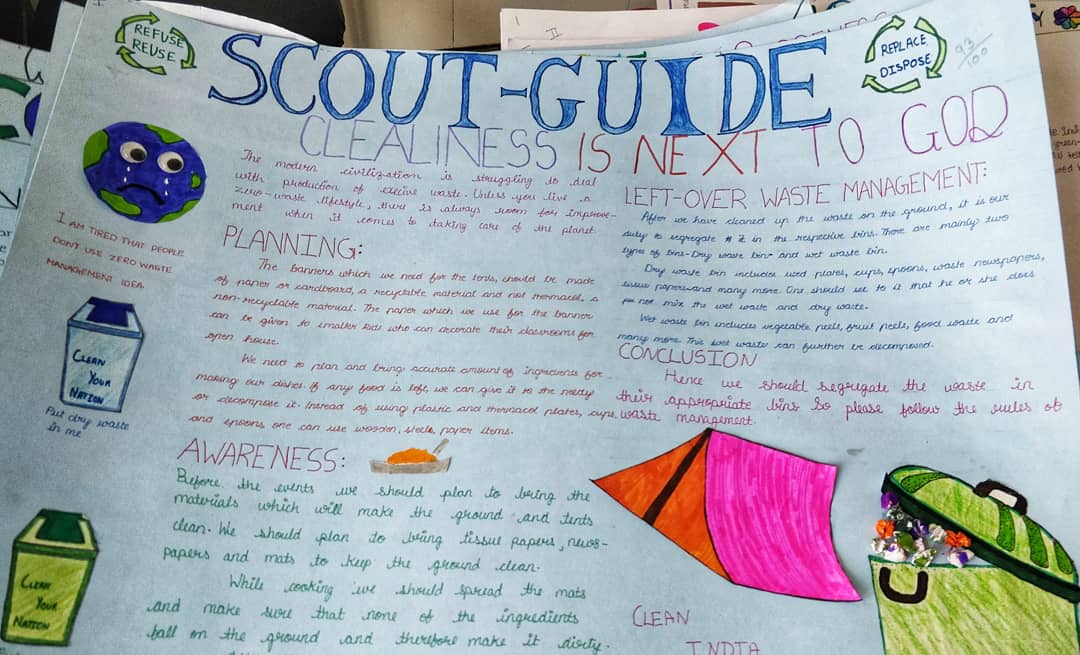 REFUSE
REUSE
SCOUT-GUIDE
REPLACE
DISPOSE
93/100
CLEALINESS IS NEXT TO GOD
The modern civilization is struggling to deal
with production of excive waste. Unless you live a
zero-waste lifestyle, there is always room for improve-
ment when it comes to taking care of the planet
I AM TIRED THAT PEOPLE
DON'T USE ZERO WASTE
MANAGEMENT IDEA
CLEAN
YOUR
NATION
Put dry waste
in me
CLEAN
YOUR
NATION
PLANNING:
The banners which we need for the tents, should be made
of paper or cardboard, a recyclable material and not thermacol, a
non-recyclable material. The paper which we use for the banner
can be given to smaller kids who can decorate their classrooms for
open house.
We need to plan and bring accurate amount of ingredients for
making our dishes. If any food is left, we can give it to the needy
or decompose it. Instead of using plastic and thermacol plates, cups
and spoons one can use wooden, steels, paper items.
AWARENESS:
Before the events we should plan to bring the
materials which will make the ground and tents
clean. We should plan to bring tissue papers, news-
papers and mats to keep the ground clean.
While cooking we should spread the mats
and make sure that none of the ingredients
fall on the ground and therefore make it dirty.
LEFT-OVER WASTE MANAGEMENT:
After we have cleaned up the waste on the ground, it is our
duty to segregate it in the respective bins. There are mainly two
types of bins-Dry waste bin and wet waste bin.
Dry waste bin includes used plates, cups, spoons, waste newspapers,
tissue papers and many more. One should see to it that he or she does
not mix the wet waste and dry waste.
Wet waste bin includes vegetable peels, fruit peels, food waste and
many more. This wet waste can further be decomposed.
CONCLUSION
Hence we should segregate the waste in
their appropriate bins So please follow the rules of
waste management.
CLEAN
INDIA